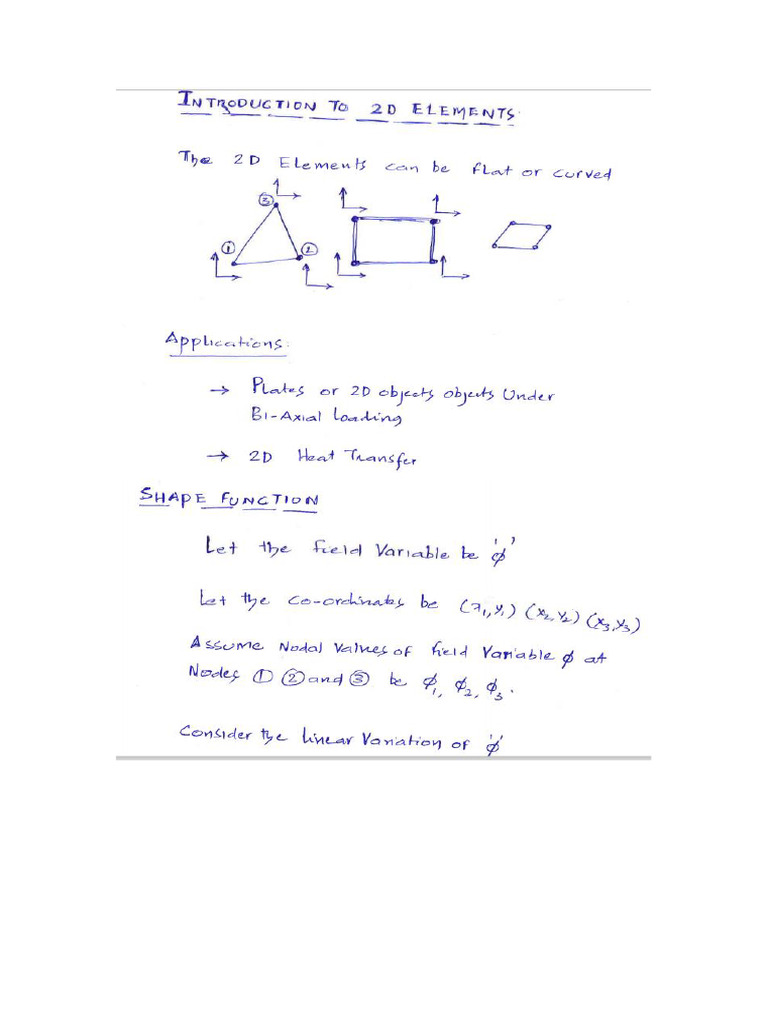 INTRODUCTION TO 2D ELEMENTS.
The 2D Elements can be flat or curved
③
① ②
Applications:
→ Plates or 2D objects objects Under
Bi-Axial Loading
→ 2D Heat Transfer
SHAPE FUNCTION
Let the field Variable be 'ϕ'
Let the co-ordinates be (x₁,y₁) (x₂,y₂) (x₃,y₃)
Assume Nodal Values of field Variable ϕ at
Nodes ① ② and ③ be ϕ₁, ϕ₂, ϕ₃.
Consider the linear Variation of 'ϕ'